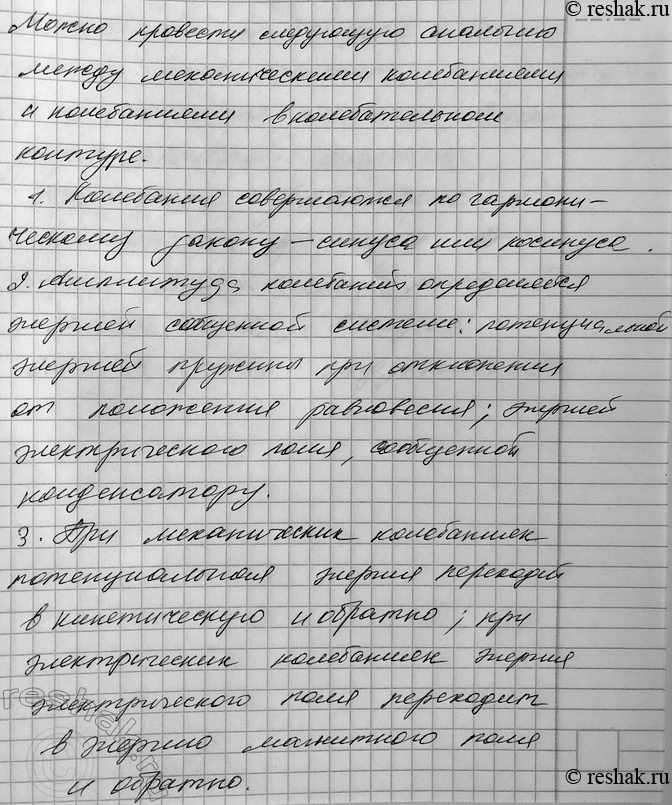 reshak.ru
Можно провести следующую аналогию
между механическими колебаниями
и колебаниями в колебательном
контуре.
1. Колебания совершаются по гармони-
ческому закону – синуса или косинуса.
2. Амплитуда колебаний определяется
энергией сообщенной системе: потенциальной
энергией пружины при отклонении
от положения равновесия; энергией
электрического поля, сообщенной
конденсатору.
3. При механических колебаниях
потенциальная энергия переходит
в кинетическую и обратно; при
электрических колебаниях энергия
электрического поля переходит
в энергию магнитного поля
и обратно.
reshak.ru
reshak.ru